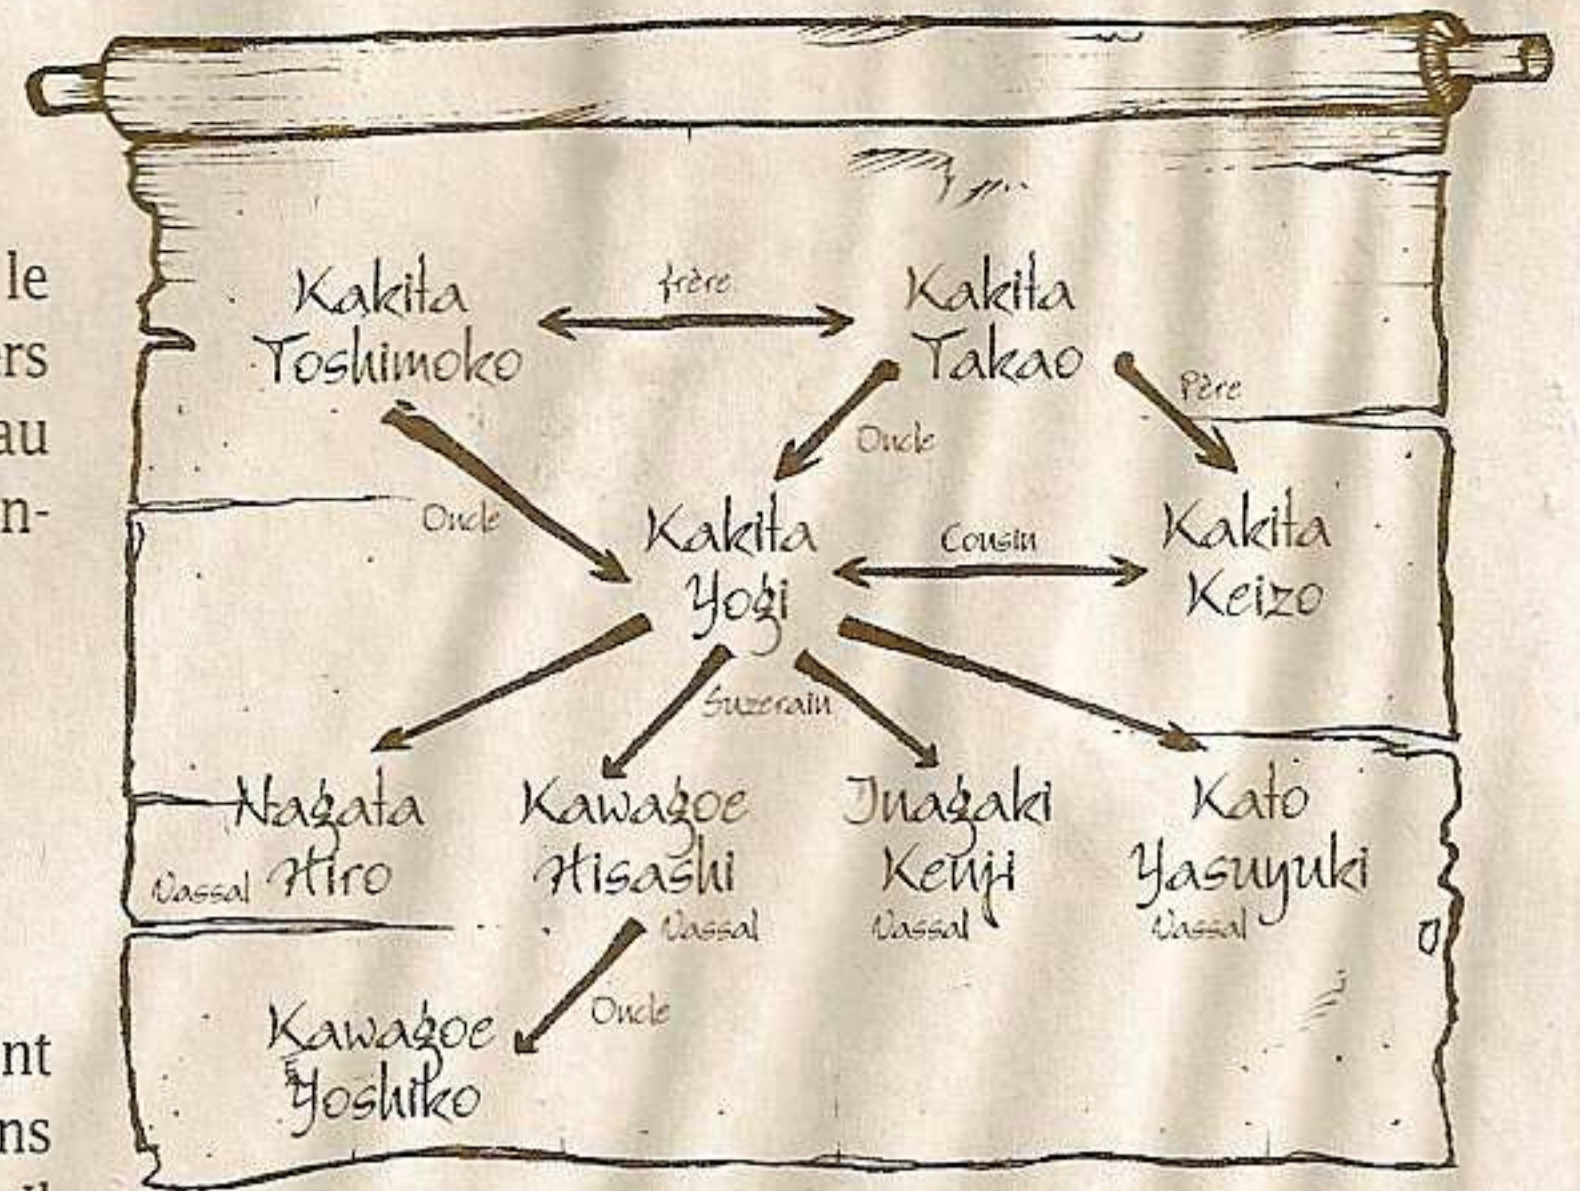 le
ers
au
n-
nt
ns
Kakita
Toshimoko
frère
Kakita
Takao
Père
Oncle
Oncle
Kakita
Yogi
Cousin
Kakita
Keizo
Suzerain
Nagata
Hiro
Vassal
Kawagoe
Hisashi
Vassal
Inagaki
Kenji
Vassal
Kato
Yasuyuki
Vassal
Oncle
Kawagoe
Yoshiko